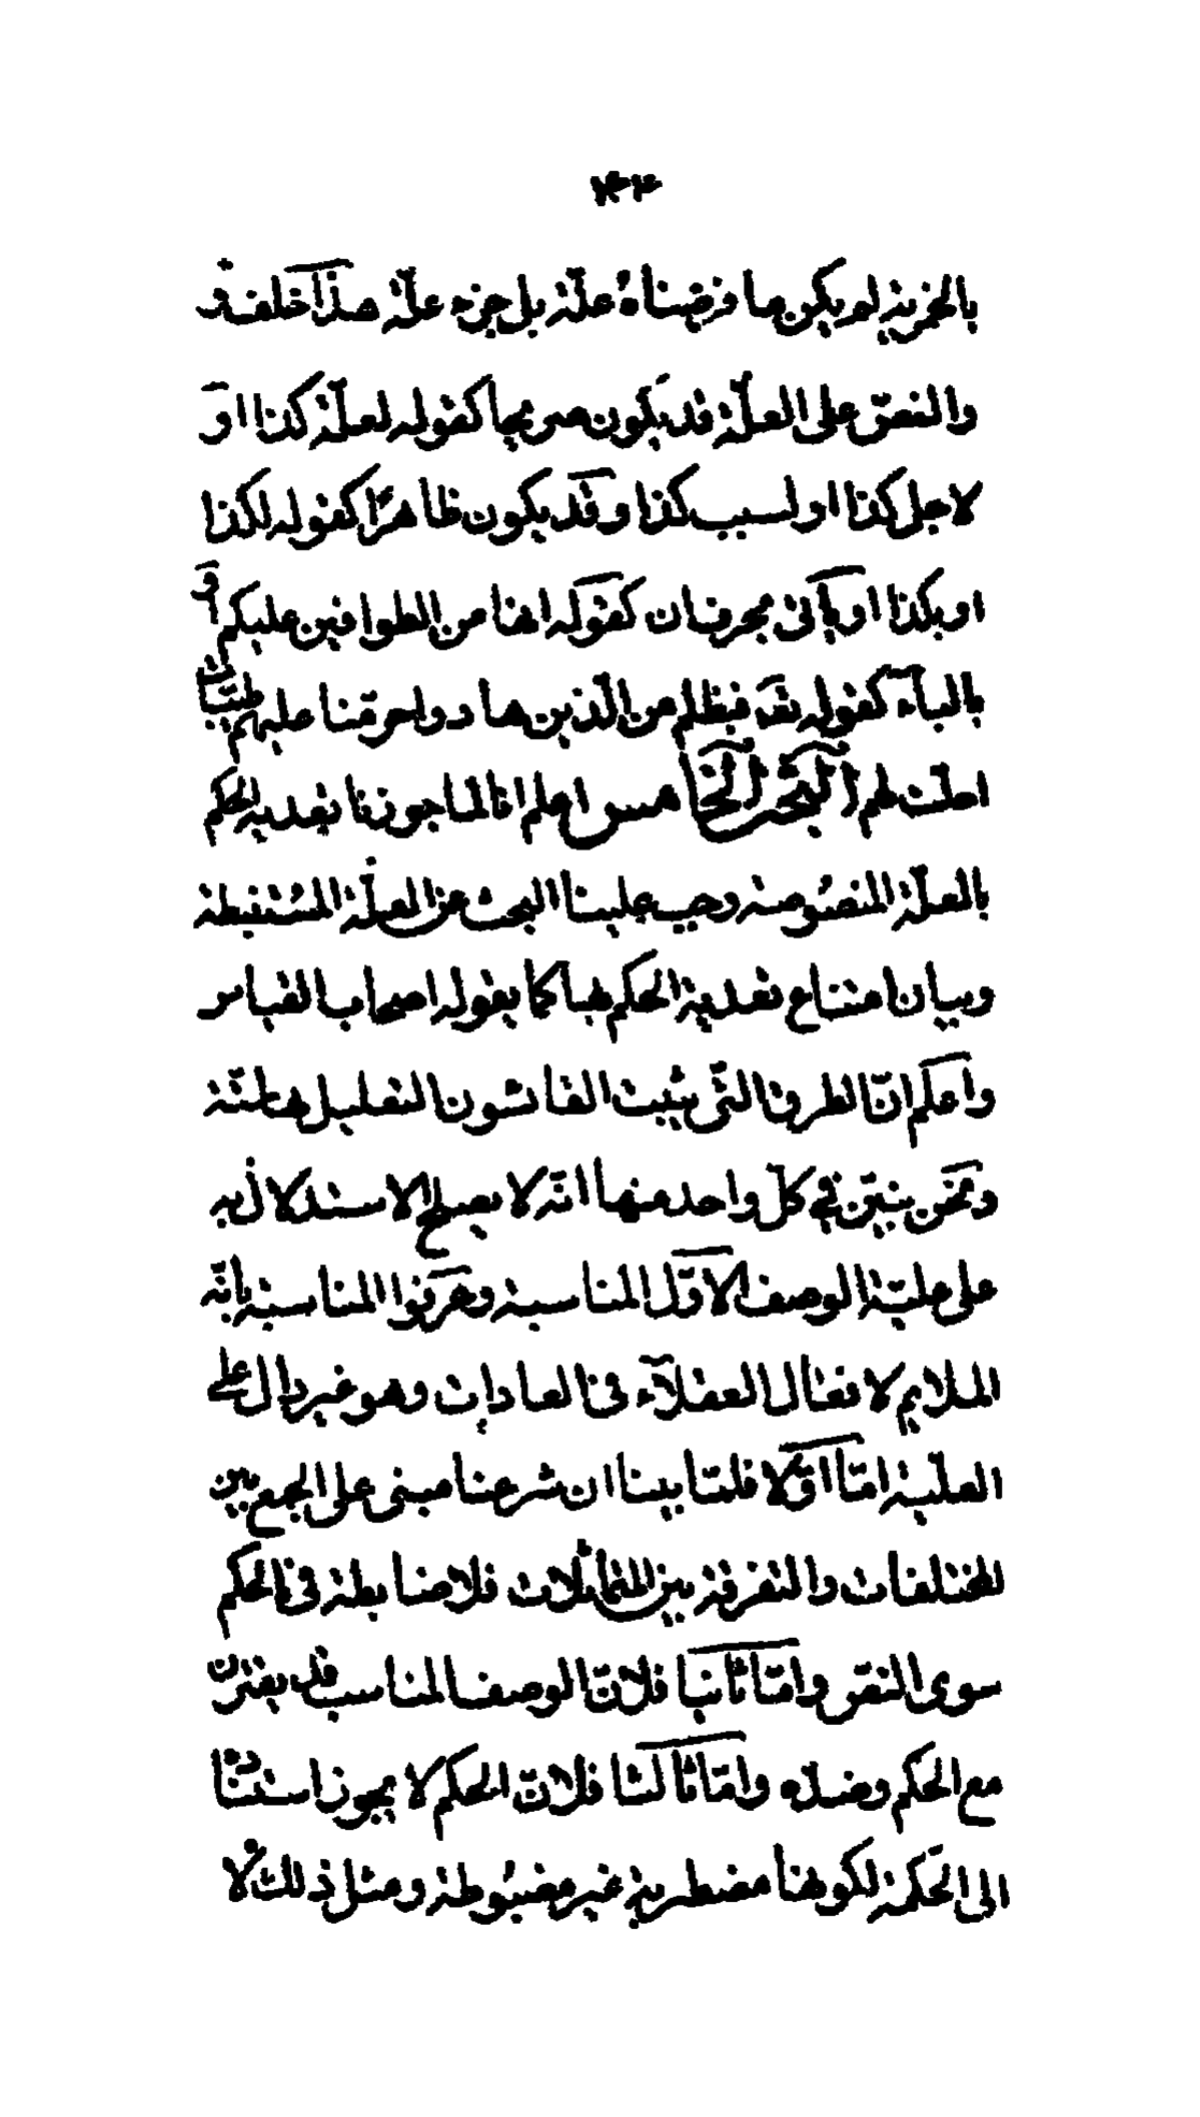 ١٤٣
بالخمرية لم يكن ما فرضناهُ علّة بل جزء علّة هذا خلف
والنصّ على العلّة قد يكون صريحا كقوله لعلّة كذا او
لاجل كذا او لسبب كذا وقد يكون ظاهرًا كقوله لكذا
او بكذا او ياتى بحرف ان كقوله انها من الطوافين عليكم او
بالبآء كقوله تع فبظلم من الّذين هادوا حرّمنا عليهم طيّبات
احلّت لهم البحث الخامس اعلم انا لما جوزنا تعدية الحكم
بالعلّة المنصُوصة وجب علينا البحث عن العلّة المسُتنبطة
وبيان امتناع تعدية الحكم بها كما يقوله اصحاب القياس
واعلم انّ الطرق الّتى يثبت القائسون التعليل بها ستّة
ونحن نبيّن في كلّ واحد منها انّه لا يصلح الاستدلال به
على عليّة الوصف الاوّل المناسبة وعرفوا المناسبة بانّه
الملايم لافعال العقلآء فى العادات وهو غير دال على
العلّية امّا اوّلا فلمّا بينا ان شرعنا مبنى على الجمع بين
المختلفات والتفرقة بين المتماثلات فلا ضابطة فى الحكم
سوى النصّ وامّا ثانيا فلانّ الوصف المناسب قد يقترن
مع الحكم وضدّه وامّا ثالثا فلانّ الحكم لا يجوز استنادُها
الى الحكمة لكونها مضطربة غير مضبُوطة ومثل ذلك لا